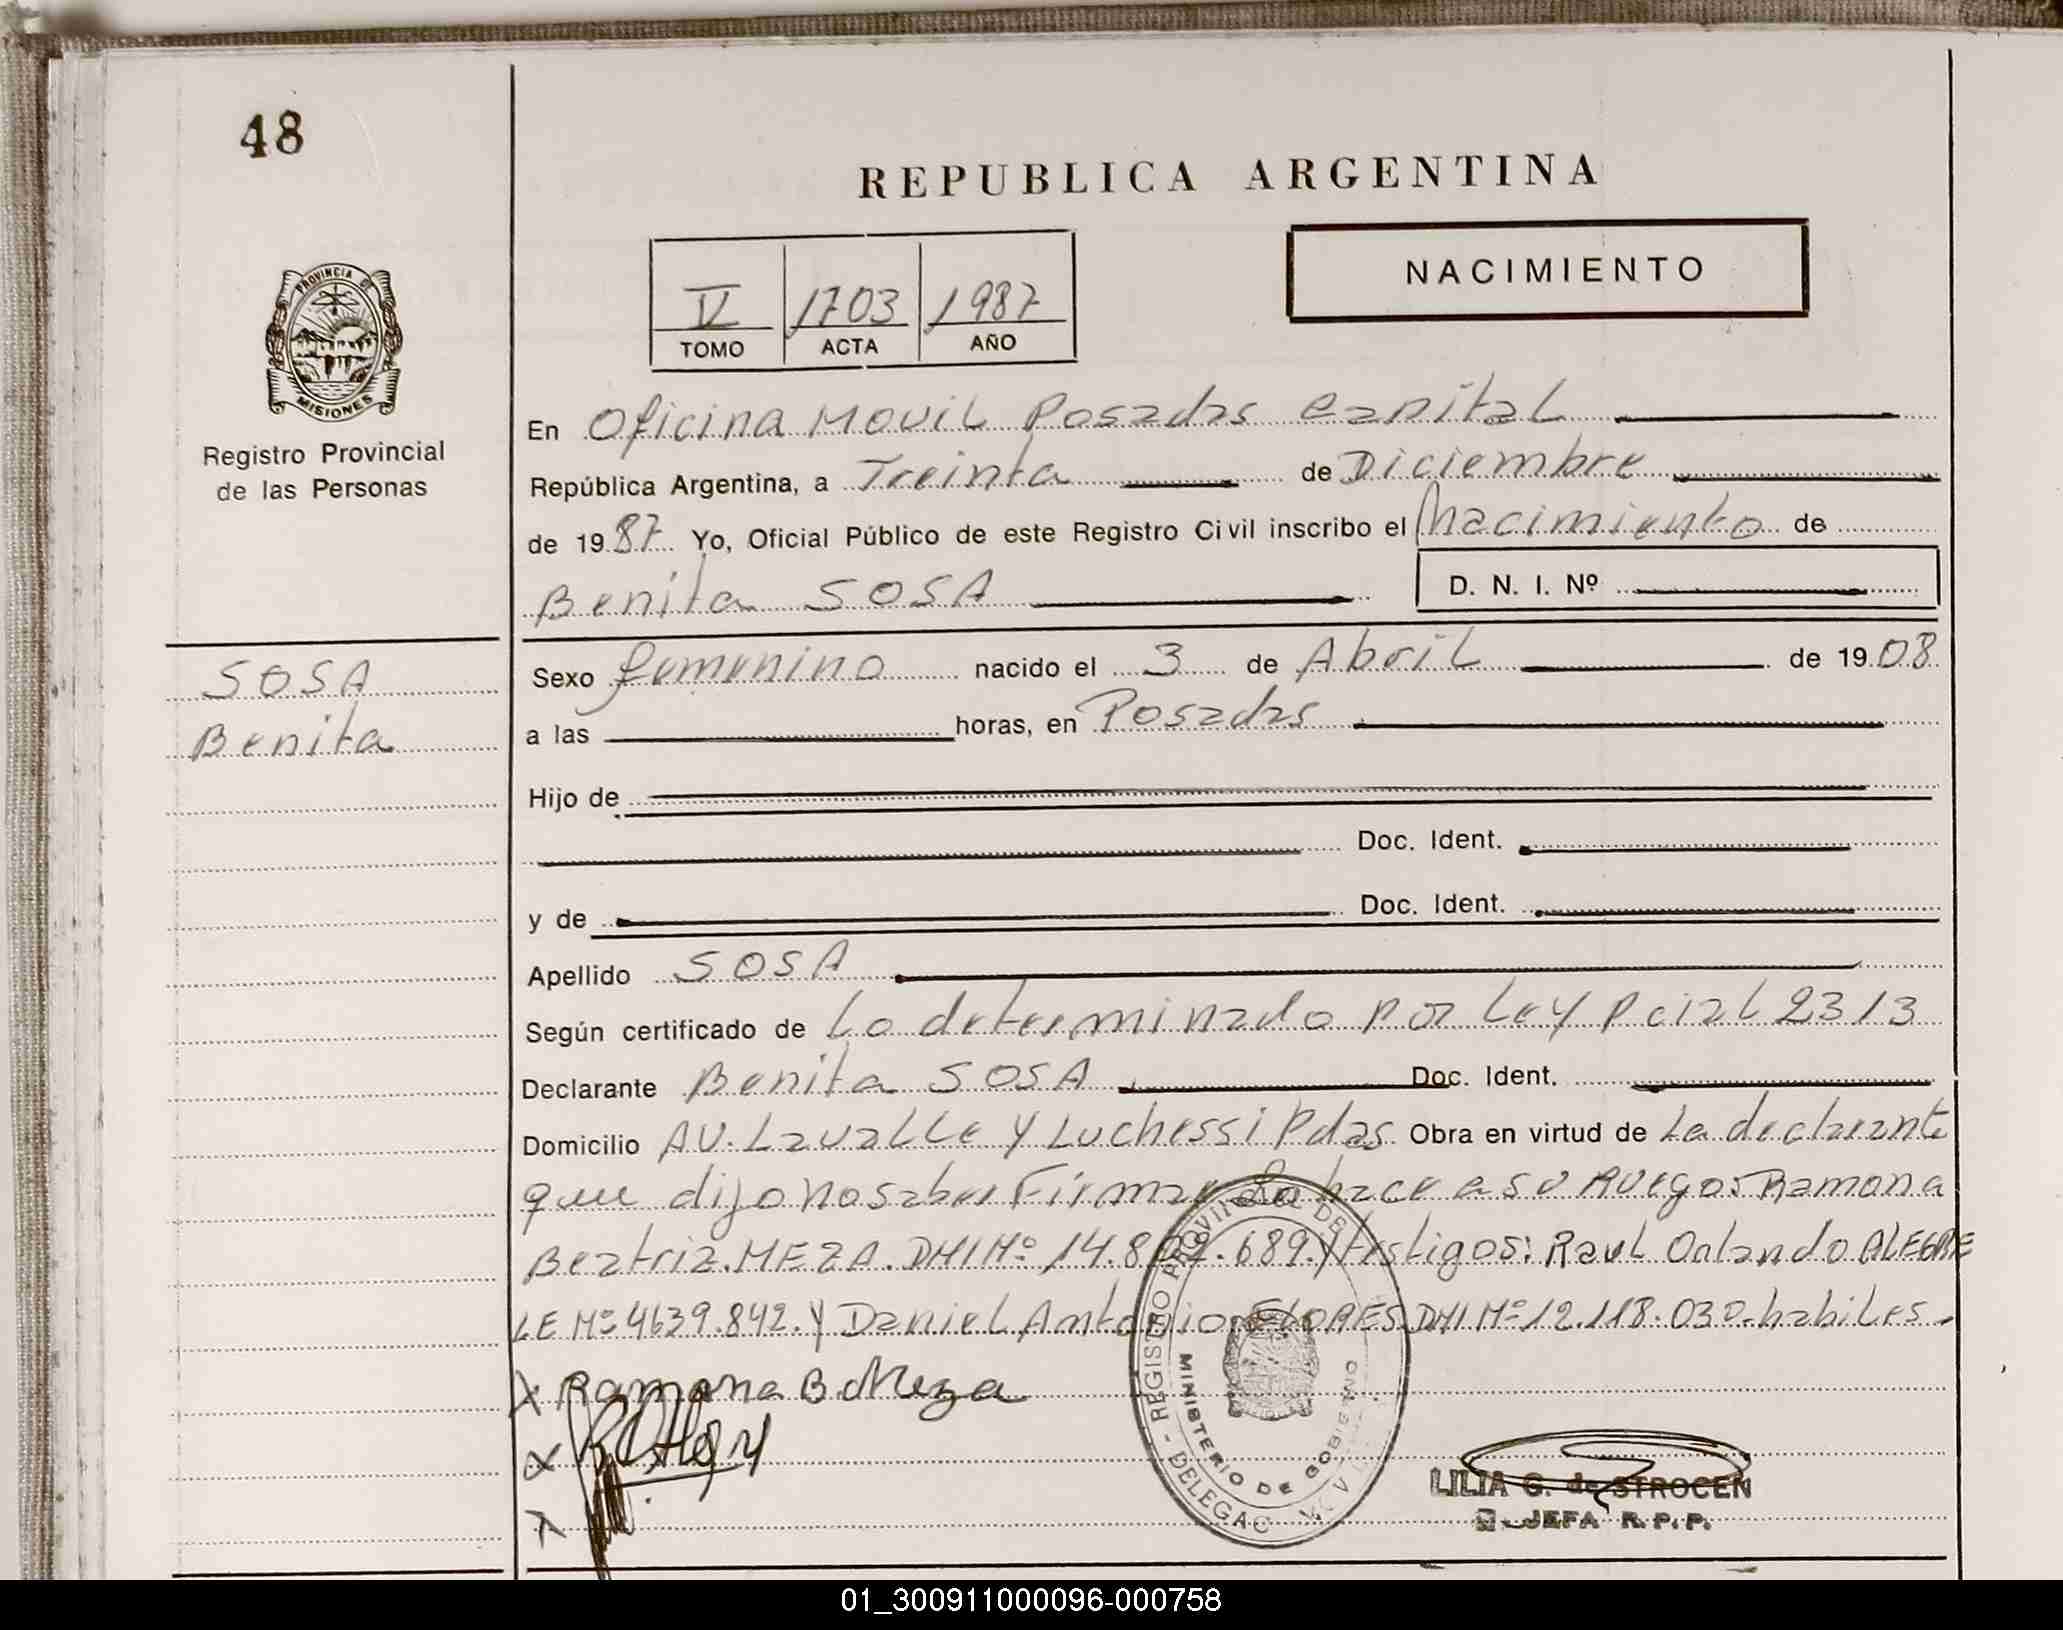 48
REPUBLICA ARGENTINA
NACIMIENTO
V 1703 1987
TOMO ACTA AÑO
PROVINCIA DE
MISIONES
Registro Provincial
de las Personas
En Oficina Movil Posadas Capital
República Argentina, a Treinta de Diciembre
de 1987 Yo, Oficial Público de este Registro Civil inscribo el Nacimiento de
Benita SOSA D. N. I. Nº
SOSA
Benita
Sexo femenino nacido el 3 de Abril de 1908
a las horas, en Posadas
Hijo de
Doc. Ident.
y de Doc. Ident.
Apellido SOSA
Según certificado de Lo determinado por Ley Pcial 2313
Declarante Benita SOSA Doc. Ident.
Domicilio AV. Lavalle y Luchessi Pdas Obra en virtud de La declarante
que dijo no saber Firmar Lo hace a su Ruegos Ramona
Beatriz MEZA. DNI Nº 14.8 .689. y testigos: Raul Orlando ALEGRE
LE Nº 4639.842. y Daniel Antonio FLORES DNI Nº 12.118.030. habiles.
X Ramona B Meza
X
X
REGISTRO PROVINCIAL DE
MINISTERIO DE GOBIERNO
DELEGAC
LILIA G. de STROCEN
JEFA R.P.P.
01_300911000096-000758